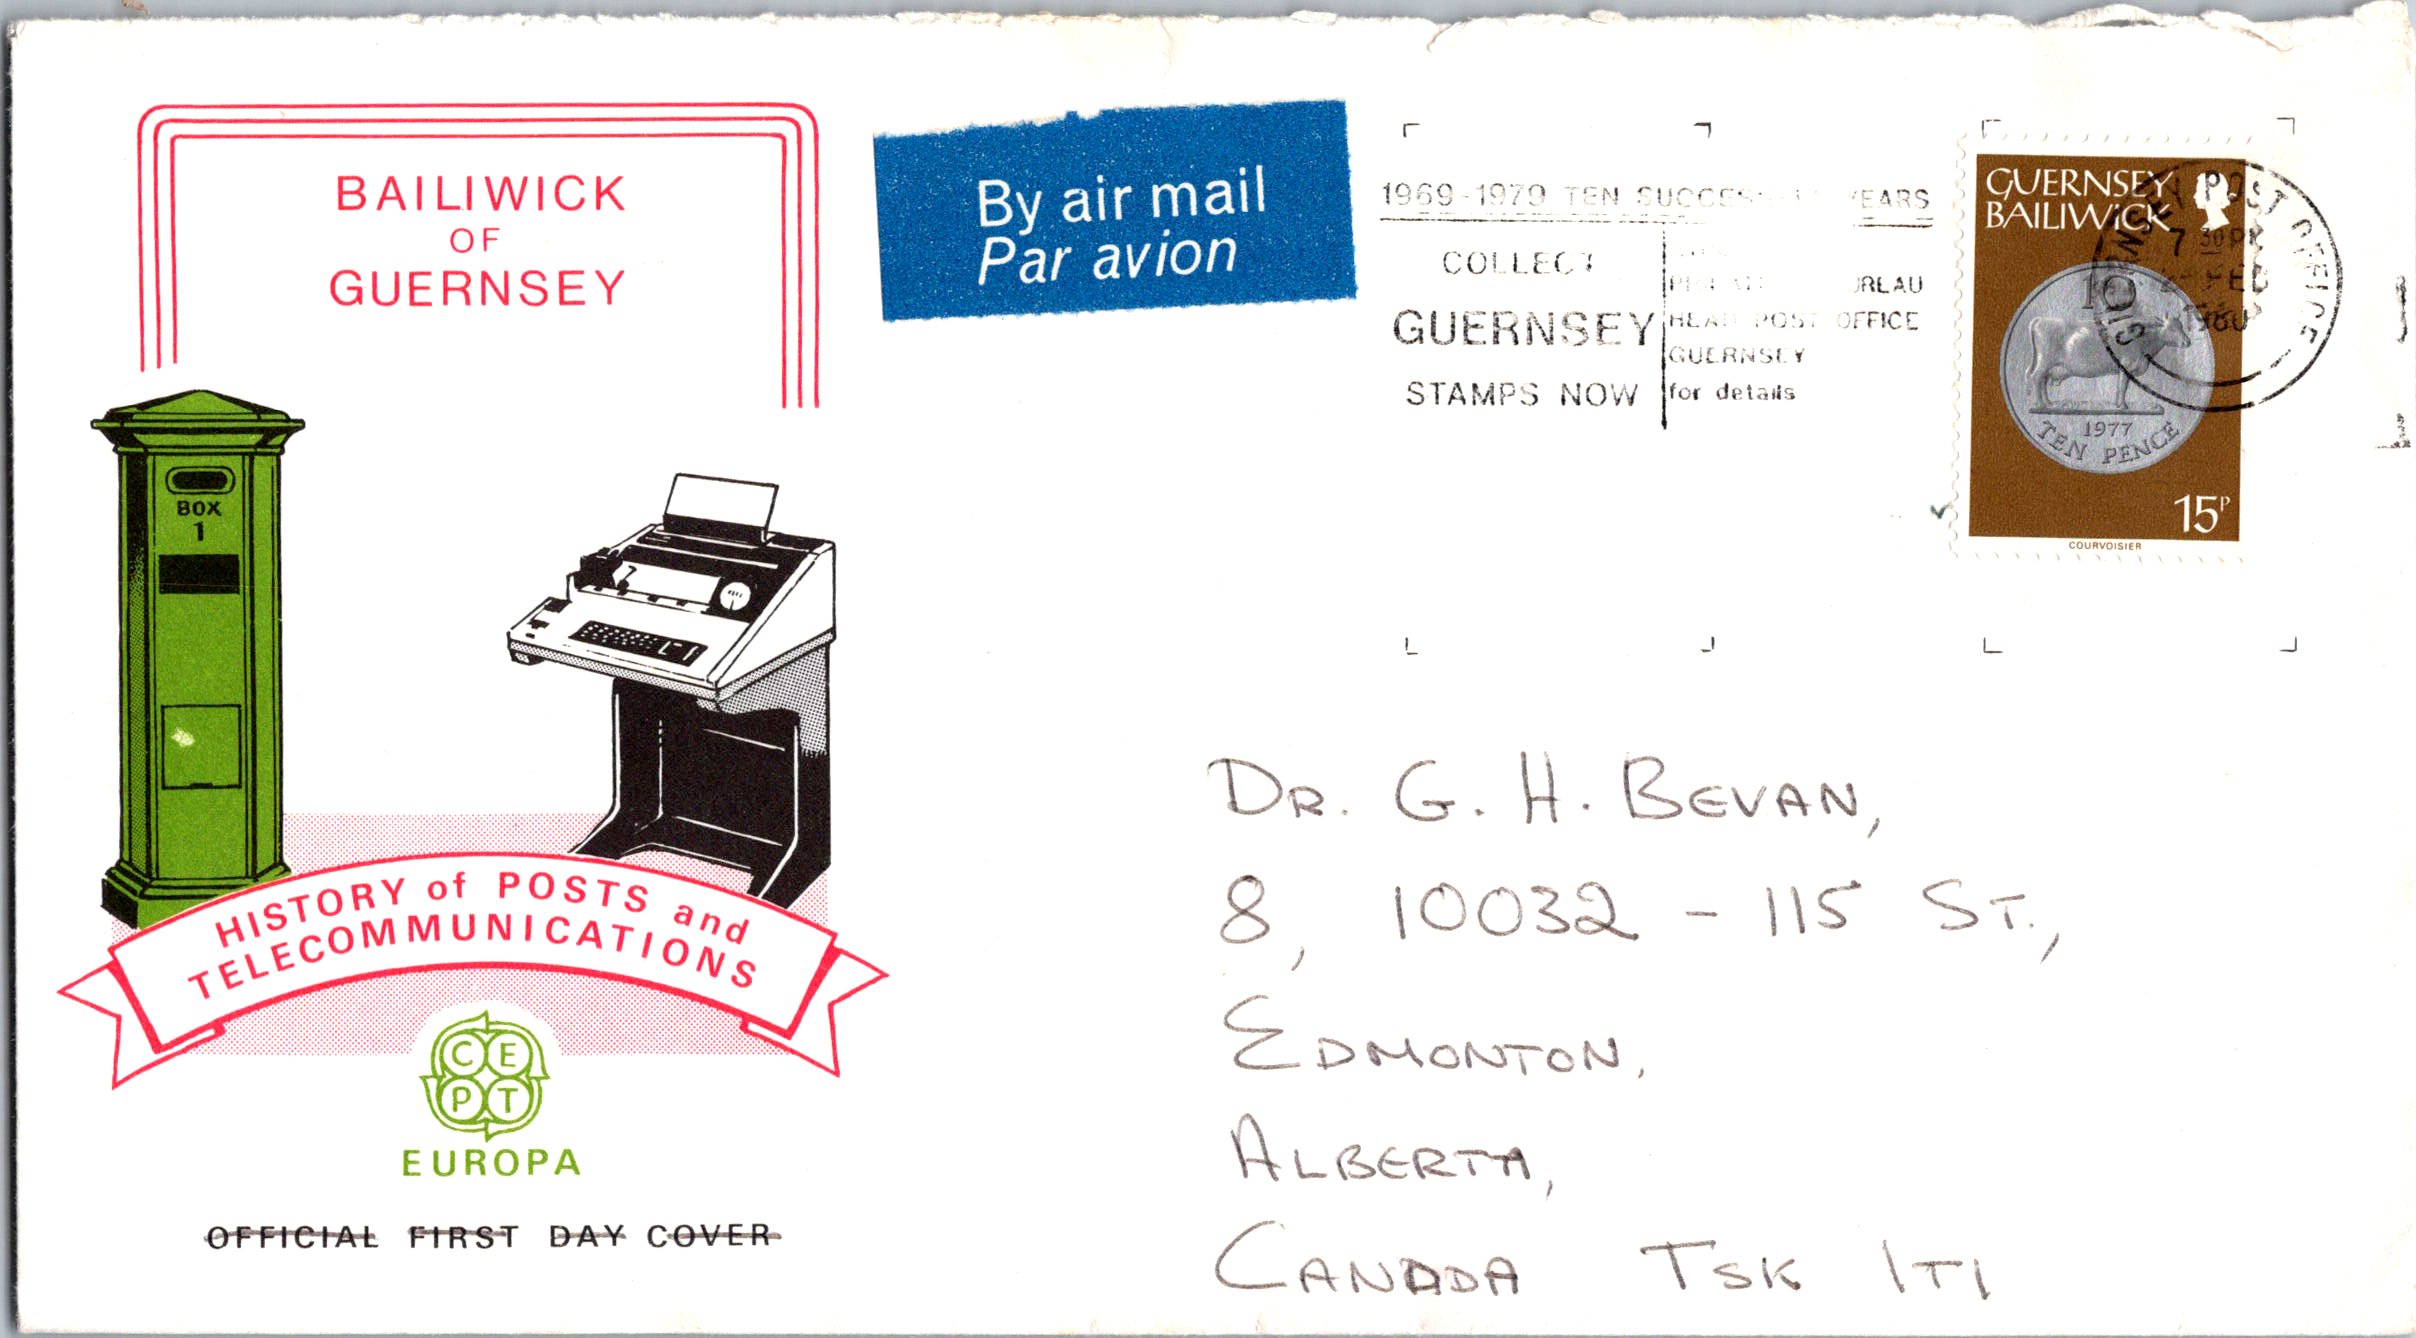 BAILIWICK
OF
GUERNSEY
BOX
1
HISTORY of POSTS and
TELECOMMUNICATIONS
CE
PT
EUROPA
OFFICIAL FIRST DAY COVER
By air mail
Par avion
1969-1979 TEN YEARS
COLLECT
GUERNSEY
STAMPS NOW
HEAD POST OFFICE
GUERNSEY
for details
GUERNSEY
BAILIWICK
POST OFFICE
7 30PM
FEB
1980
10
1977
TEN PENCE
15P
COURVOISIER
DR. G. H. BEVAN,
8, 10032 - 115 ST.,
EDMONTON,
ALBERTA,
CANADA T5K 1T1